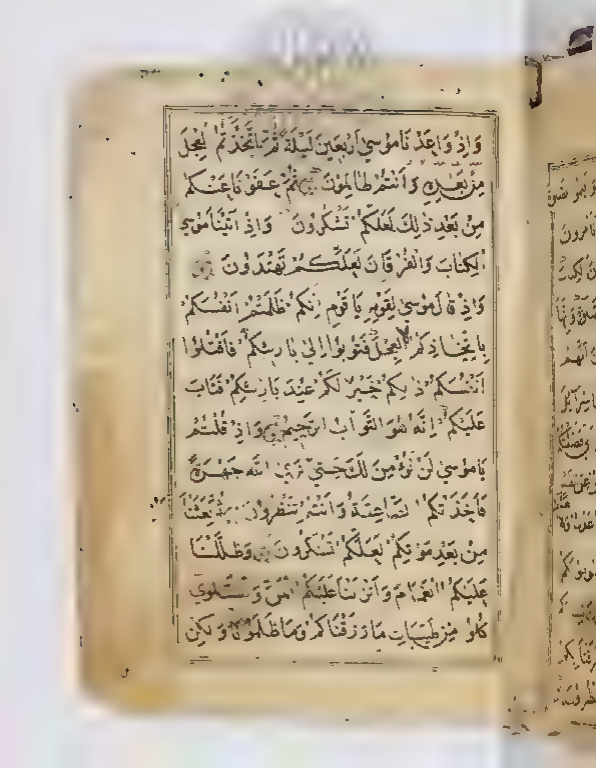 وَاِذْ وَاعَدْنَا مُوسٰي اَرْبَعِينَ لَيْلَةً ثُمَّ اتَّخَذْتُمُ الْعِجْلَ
مِنْ بَعْدِهِ وَاَنْتُمْ ظَالِمُونَ ثُمَّ عَفَوْنَا عَنْكُمْ
مِنْ بَعْدِ ذٰلِكَ لَعَلَّكُمْ تَشْكُرُونَ وَاِذْ اٰتَيْنَا مُوسَي
الْكِتَابَ وَالْفُرْقَانَ لَعَلَّكُمْ تَهْتَدُونَ
وَاِذْ قَالَ مُوسٰي لِقَوْمِهِ يَا قَوْمِ اِنَّكُمْ ظَلَمْتُمْ اَنْفُسَكُمْ
بِاتِّخَاذِكُمُ الْعِجْلَ فَتُوبُوا اِلٰي بَارِئِكُمْ فَاقْتُلُوا
اَنْفُسَكُمْ ذٰلِكُمْ خَيْرٌ لَكُمْ عِنْدَ بَارِئِكُمْ فَتَابَ
عَلَيْكُمْ اِنَّهُ هُوَ التَّوَّابُ الرَّحِيمُ وَاِذْ قُلْتُمْ
يَا مُوسٰي لَنْ نُؤْمِنَ لَكَ حَتّٰي نَرَي اللّٰهَ جَهْرَةً
فَاَخَذَتْكُمُ الصَّاعِقَةُ وَاَنْتُمْ تَنْظُرُونَ ثُمَّ بَعَثْنَاكُمْ
مِنْ بَعْدِ مَوْتِكُمْ لَعَلَّكُمْ تَشْكُرُونَ وَظَلَّلْنَا
عَلَيْكُمُ الْغَمَامَ وَاَنْزَلْنَا عَلَيْكُمُ الْمَنَّ وَالسَّلْوٰي
كُلُوا مِنْ طَيِّبَاتِ مَا رَزَقْنَاكُمْ وَمَا ظَلَمُونَا وَلٰكِنْ